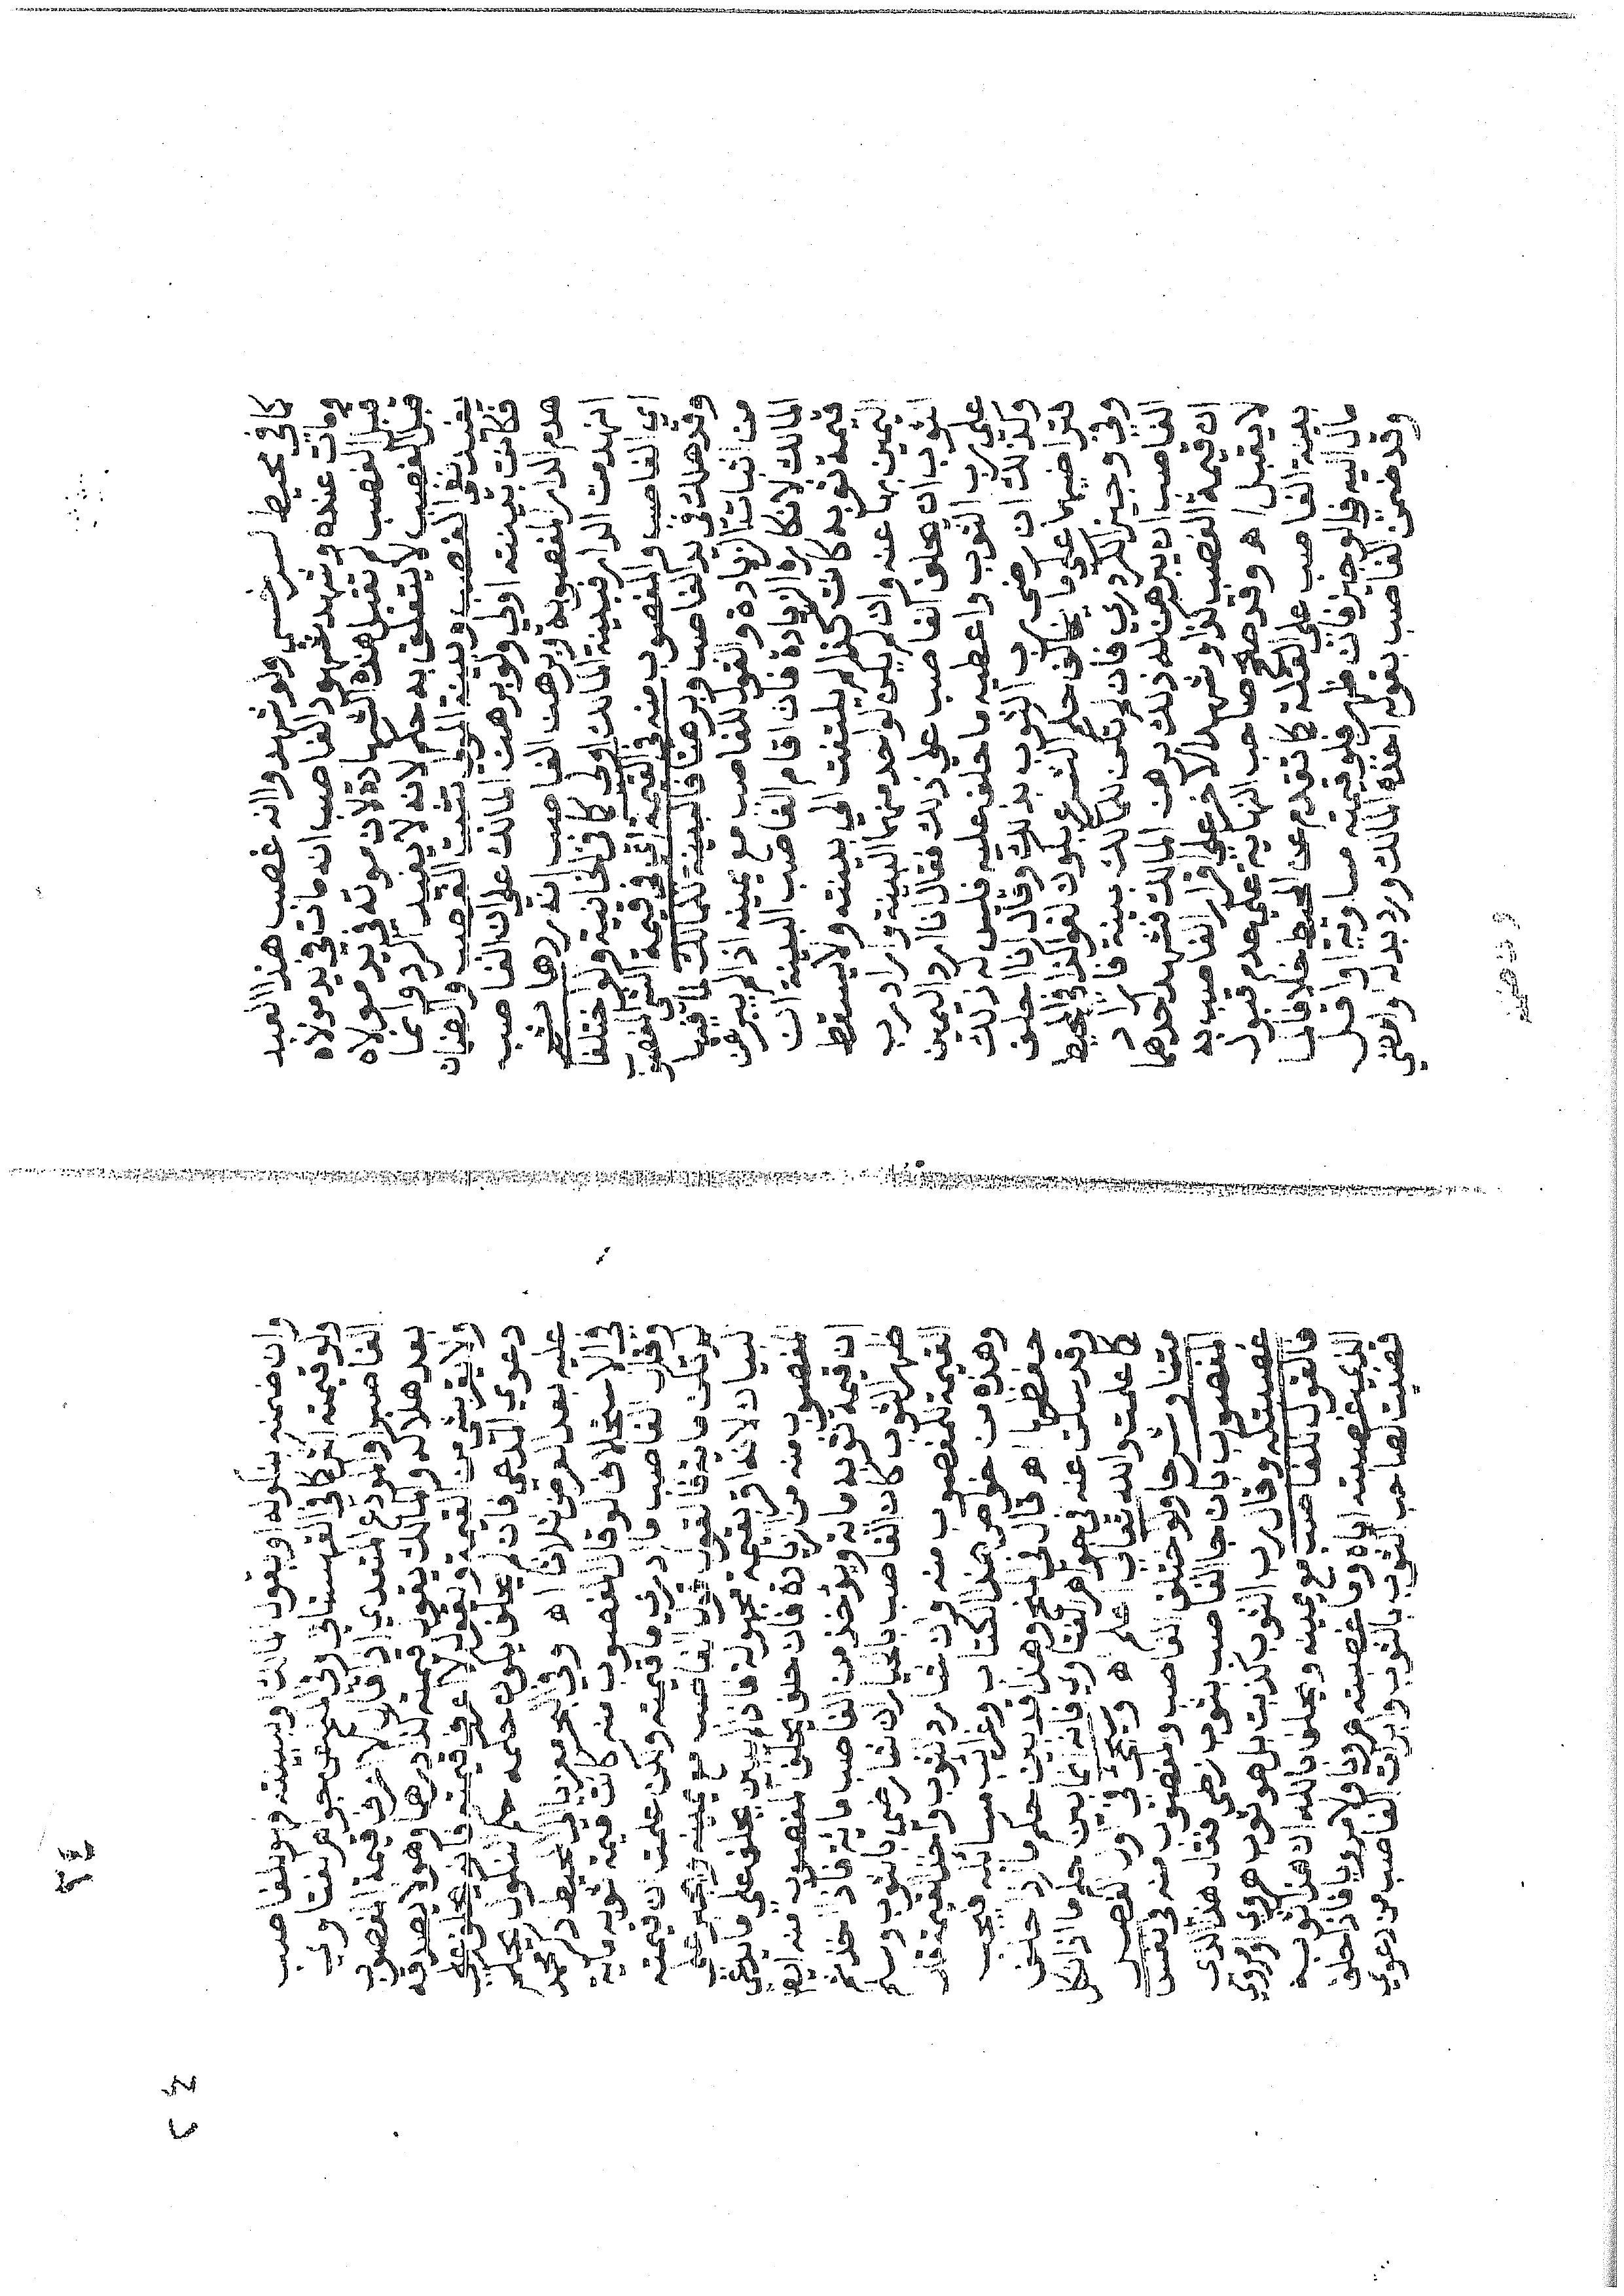 كما في محيط السرخسي ولو شهدوا انه غصب هذا العبد
ومات عنده وشهد شهود الغاصب انه مات في يد مولاه
قبل الغصب لم تقبل هذه الشهادة لان موته في يد مولاه
قبل الغصب لا يتعلق به حكم لانه لا يفيد الرد وانما
يفيد نفي الغصب وبينة المولي تثبت الغصب والضمان
فكانت بينته اولي ولو برهن المالك علي ان الغاصب
هدم الدار المغصوبة وبرهن الغاصب انه ردها ثم
انهدمت الدار فبينة المالك اولي كما في الخانية ولو اختلفا
اي الغاصب والمغصوب منه في القيمة اي في قيمة الشي المغصوب
وقد هلك في يد الغاصب وبرهنا فالبينة للمالك لما فيها
من اثبات الزيادة والقول للغاصب مع يمينه اذا لم يبرهن
المالك لانكاره الزيادة فان اقام الغاصب البينة ان
قيمة ثوبه كانت كذا لم يلتفت الي بينته ولا يسقط
اليمين بها عنه وان لم يكن لواحد منهما البينة واراد رب
الثوب ان يحلف الغاصب علي ذلك فقال انا ارد اليمين
علي رب الثوب واعطيه ما حلف عليه فليس له ذلك
وكذلك ان رضي رب الثوب بذلك وقال انا احلف
فتراضيهما علي ما يخالف حكم الشرع يكون لغوا كذا في المحيط
وفي وجيز الكردري فان لم تكن للمالك بينة فاراد
الغاصب ان يبرهن له ذلك برهن المالك فشهد احدهما
ان قيمة الغصب كذا وشهد الاخر علي اقرار الغاصب به
لا يقبل اه وقد صحح صاحب النهاية علي عدم قبول
بينة الغاصب علي القلة كما تقدم عن المحيط خلافا لما
مال اليه في الوجيز فان ظهر فلو قيمته مساوية او اقل
وقد ضمن الغاصب بقوله اخذه المالك ورد بدله او امضي
وان ضمنه
وان ضمنه بنكوله او بقول المالك او ببينته فهو للغاصب
ولو قيمته اكثر كما في القهستاني وفي المنح عن جواهر الفتاوي
الغاصب او المودع المتعدي اذا قال لا اعرف قيمة المغصوب
بعد هلاكه والمالك يقول قيمته كذا درهما وهو لا يصدقه
ولا يقر بشي من القيمة ويقول لا اعرف قيمته فانه يحلف علي
دعوي المدعي فان لم يحلف يكون حكمه حكم النكول يحكم
عليه بعد العرض ثلاثا اه وفي البحر معزيا الي المحيط ذكر محمد
في الاستحلاف لو قال المغصوب منه كانت قيمة ثوبه ماية
وقال الغاصب ما ادري ما قيمته ولكن علمت ان قيمته
لم تكن ماية فالقول قول الغاصب مع يمينه ويجبر علي
البيان لانه اقر بقيمة مجهولة فاذا لم يبين يحلف علي ما يدعي
المغصوب منه من الزيادة فان حلف يحلف المغصوب منه ايضا
ان قيمة ثوبه ماية ويؤخذ من الغاصب ماية فاذا اخذ ثم
ظهر الثوب كان الغاصب بالخيار ان شا رضي بالثوب وسلم
القيمة للمغصوب منه وان شا رد الثوب واخذ القيمة قال
وهذه من خواص هذا الكتاب وغرايب مسائله فيجب
حفظها اه قال في المنح وهذا قد بين حكم ما اذا حلف
وقد سكت عنه في جواهر الفتاوي فانه انما بين حكم ما اذا نكل
كما علمت والله تعالي اعلم اه وسيجي في اول الفصل
متنا وشرحا ولو اختلف الغاصب والمغصوب منه في نفس
المغصوب بان جا الغاصب بثوب زطي فقال هذا الذي
غصبتكه وقال رب الثوب كذبت بل هو ثوب هروي او مروي
فالقول للغاصب مع يمينه ويحلف بالله ان هذا ثوبه
الذي غصبته اياه وما غصبته هرويا ولا مرويا فاذا حلف
قضيت لصاحب الثوب بالثوب وابرات الغاصب من دعوي